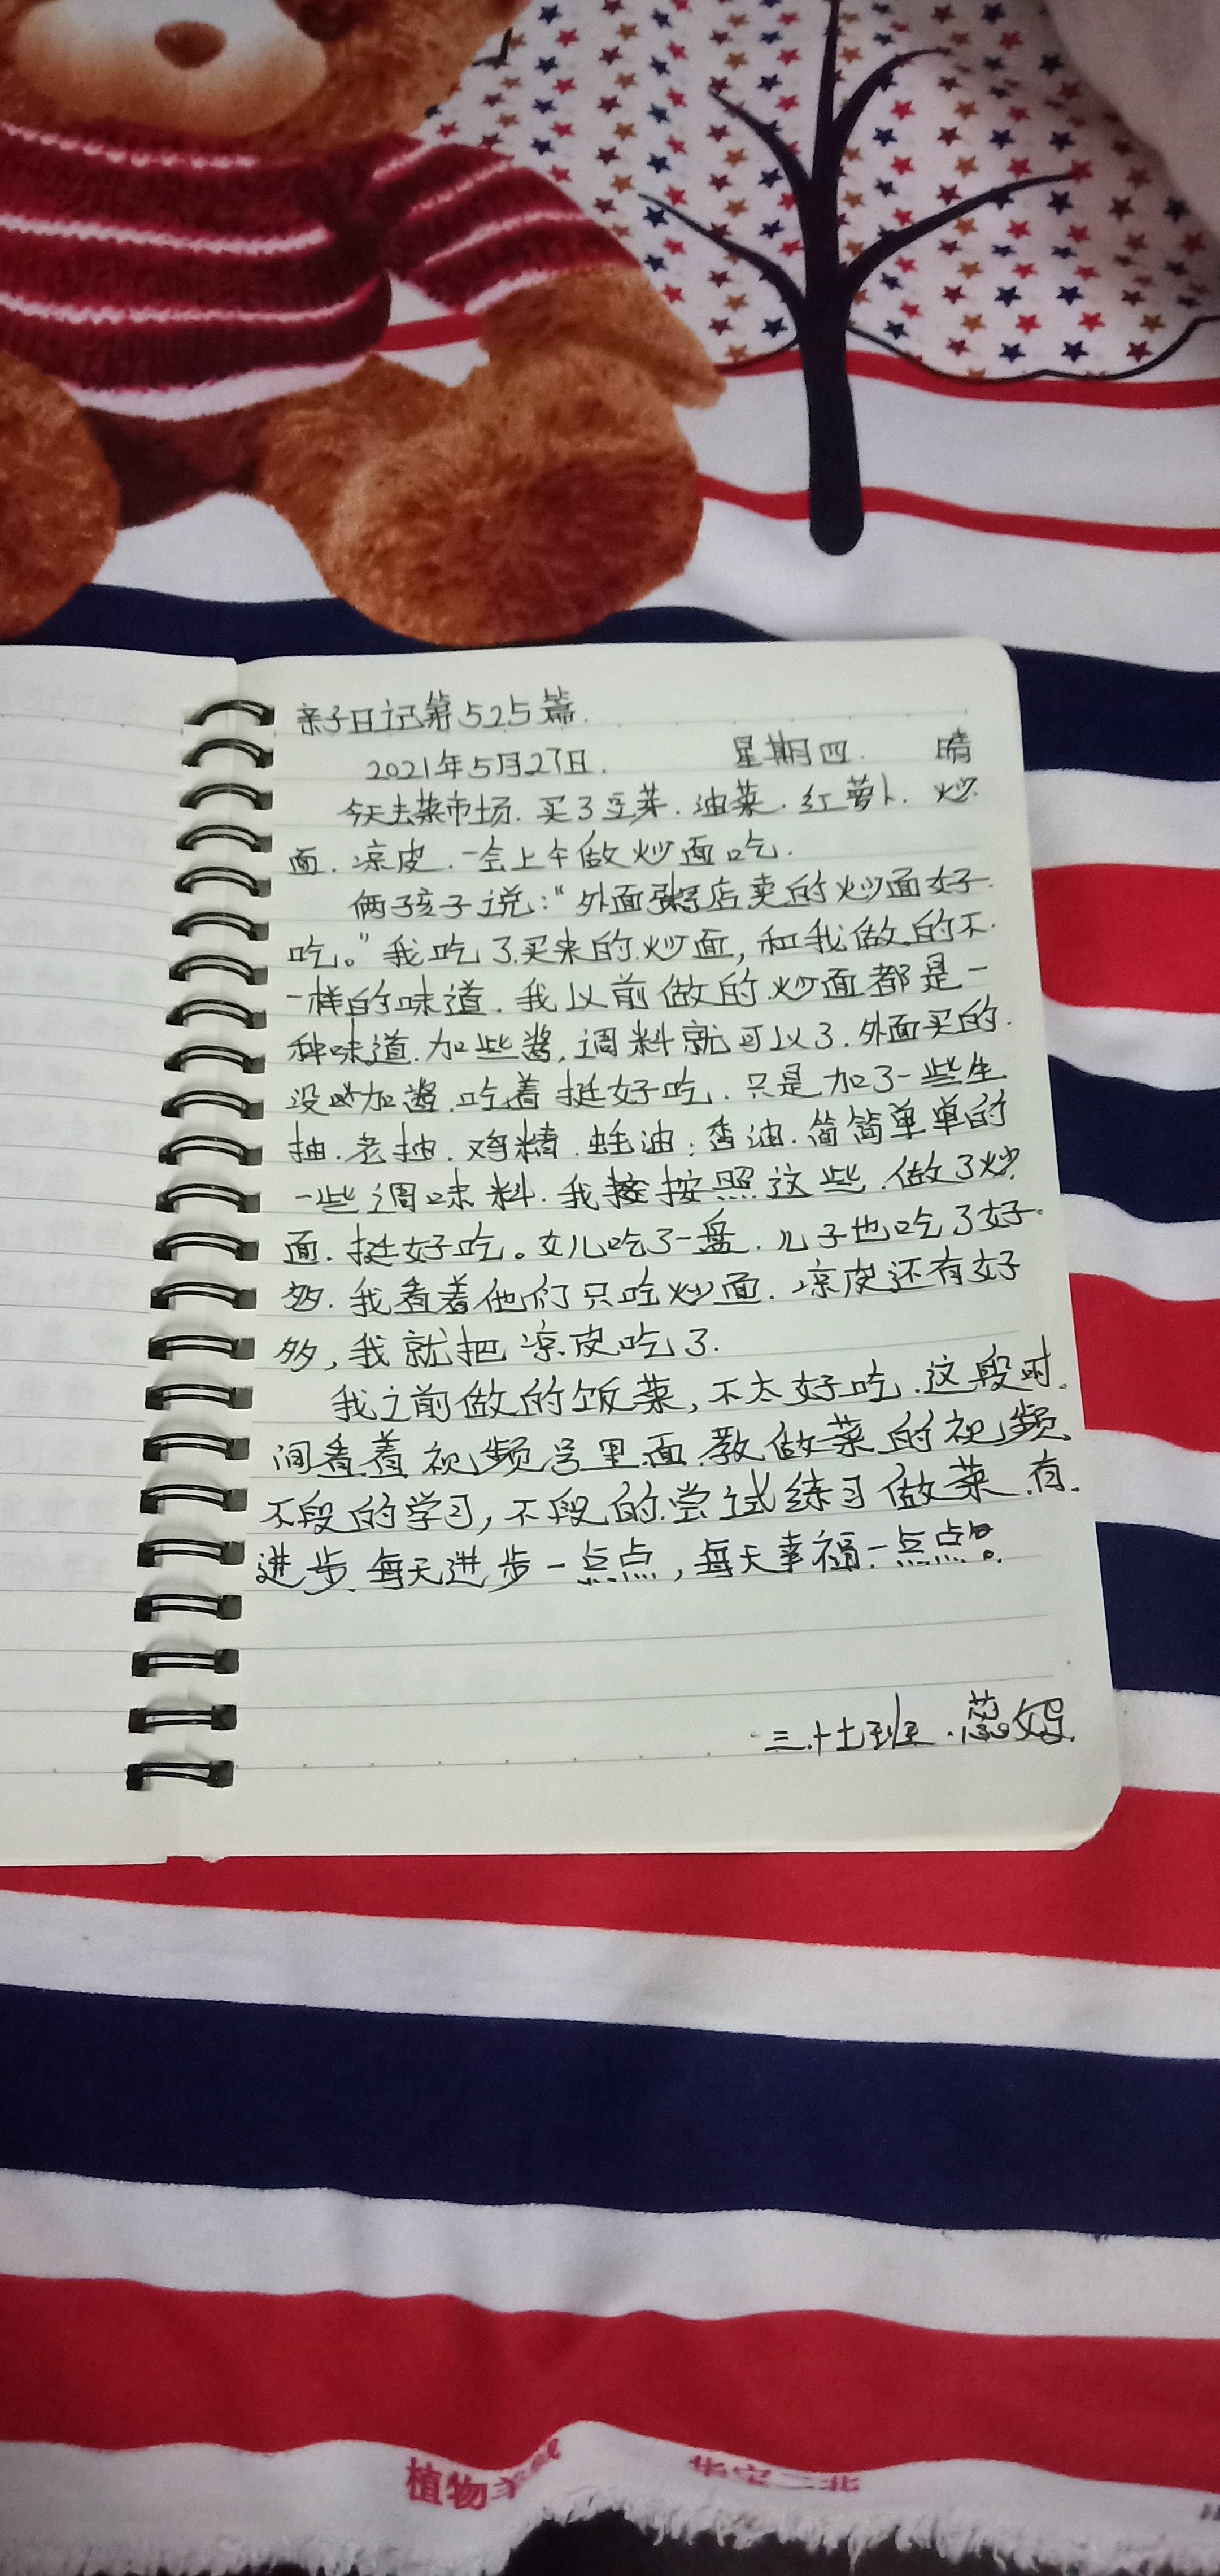 亲子日记第525篇.
2021年5月27日. 星期四. 晴
今天去菜市场.买了豆芽.油菜.红萝卜.炒
面.凉皮.一会上午做炒面吃.
俩孩子说:“外面粥店卖的炒面好
吃。”我吃了买来的炒面,和我做的不
一样的味道.我以前做的炒面都是一
种味道.加些酱,调料就可以了.外面买的
没加酱.吃着挺好吃.只是加了一些生
抽.老抽.鸡精.蚝油:香油.简简单单的
一些调味料.我按照这些.做了炒
面.挺好吃。女儿吃了一盘.儿子也吃了好
多.我看着他们只吃炒面.凉皮还有好
多,我就把凉皮吃了.
我之前做的饭菜,不太好吃.这段时
间看着视频号里面教做菜的视频
不段的学习,不段的尝试练习做菜.有
进步.每天进步一点点,每天幸福一点点。
三.十七班.蕊妈.
植物羊绒